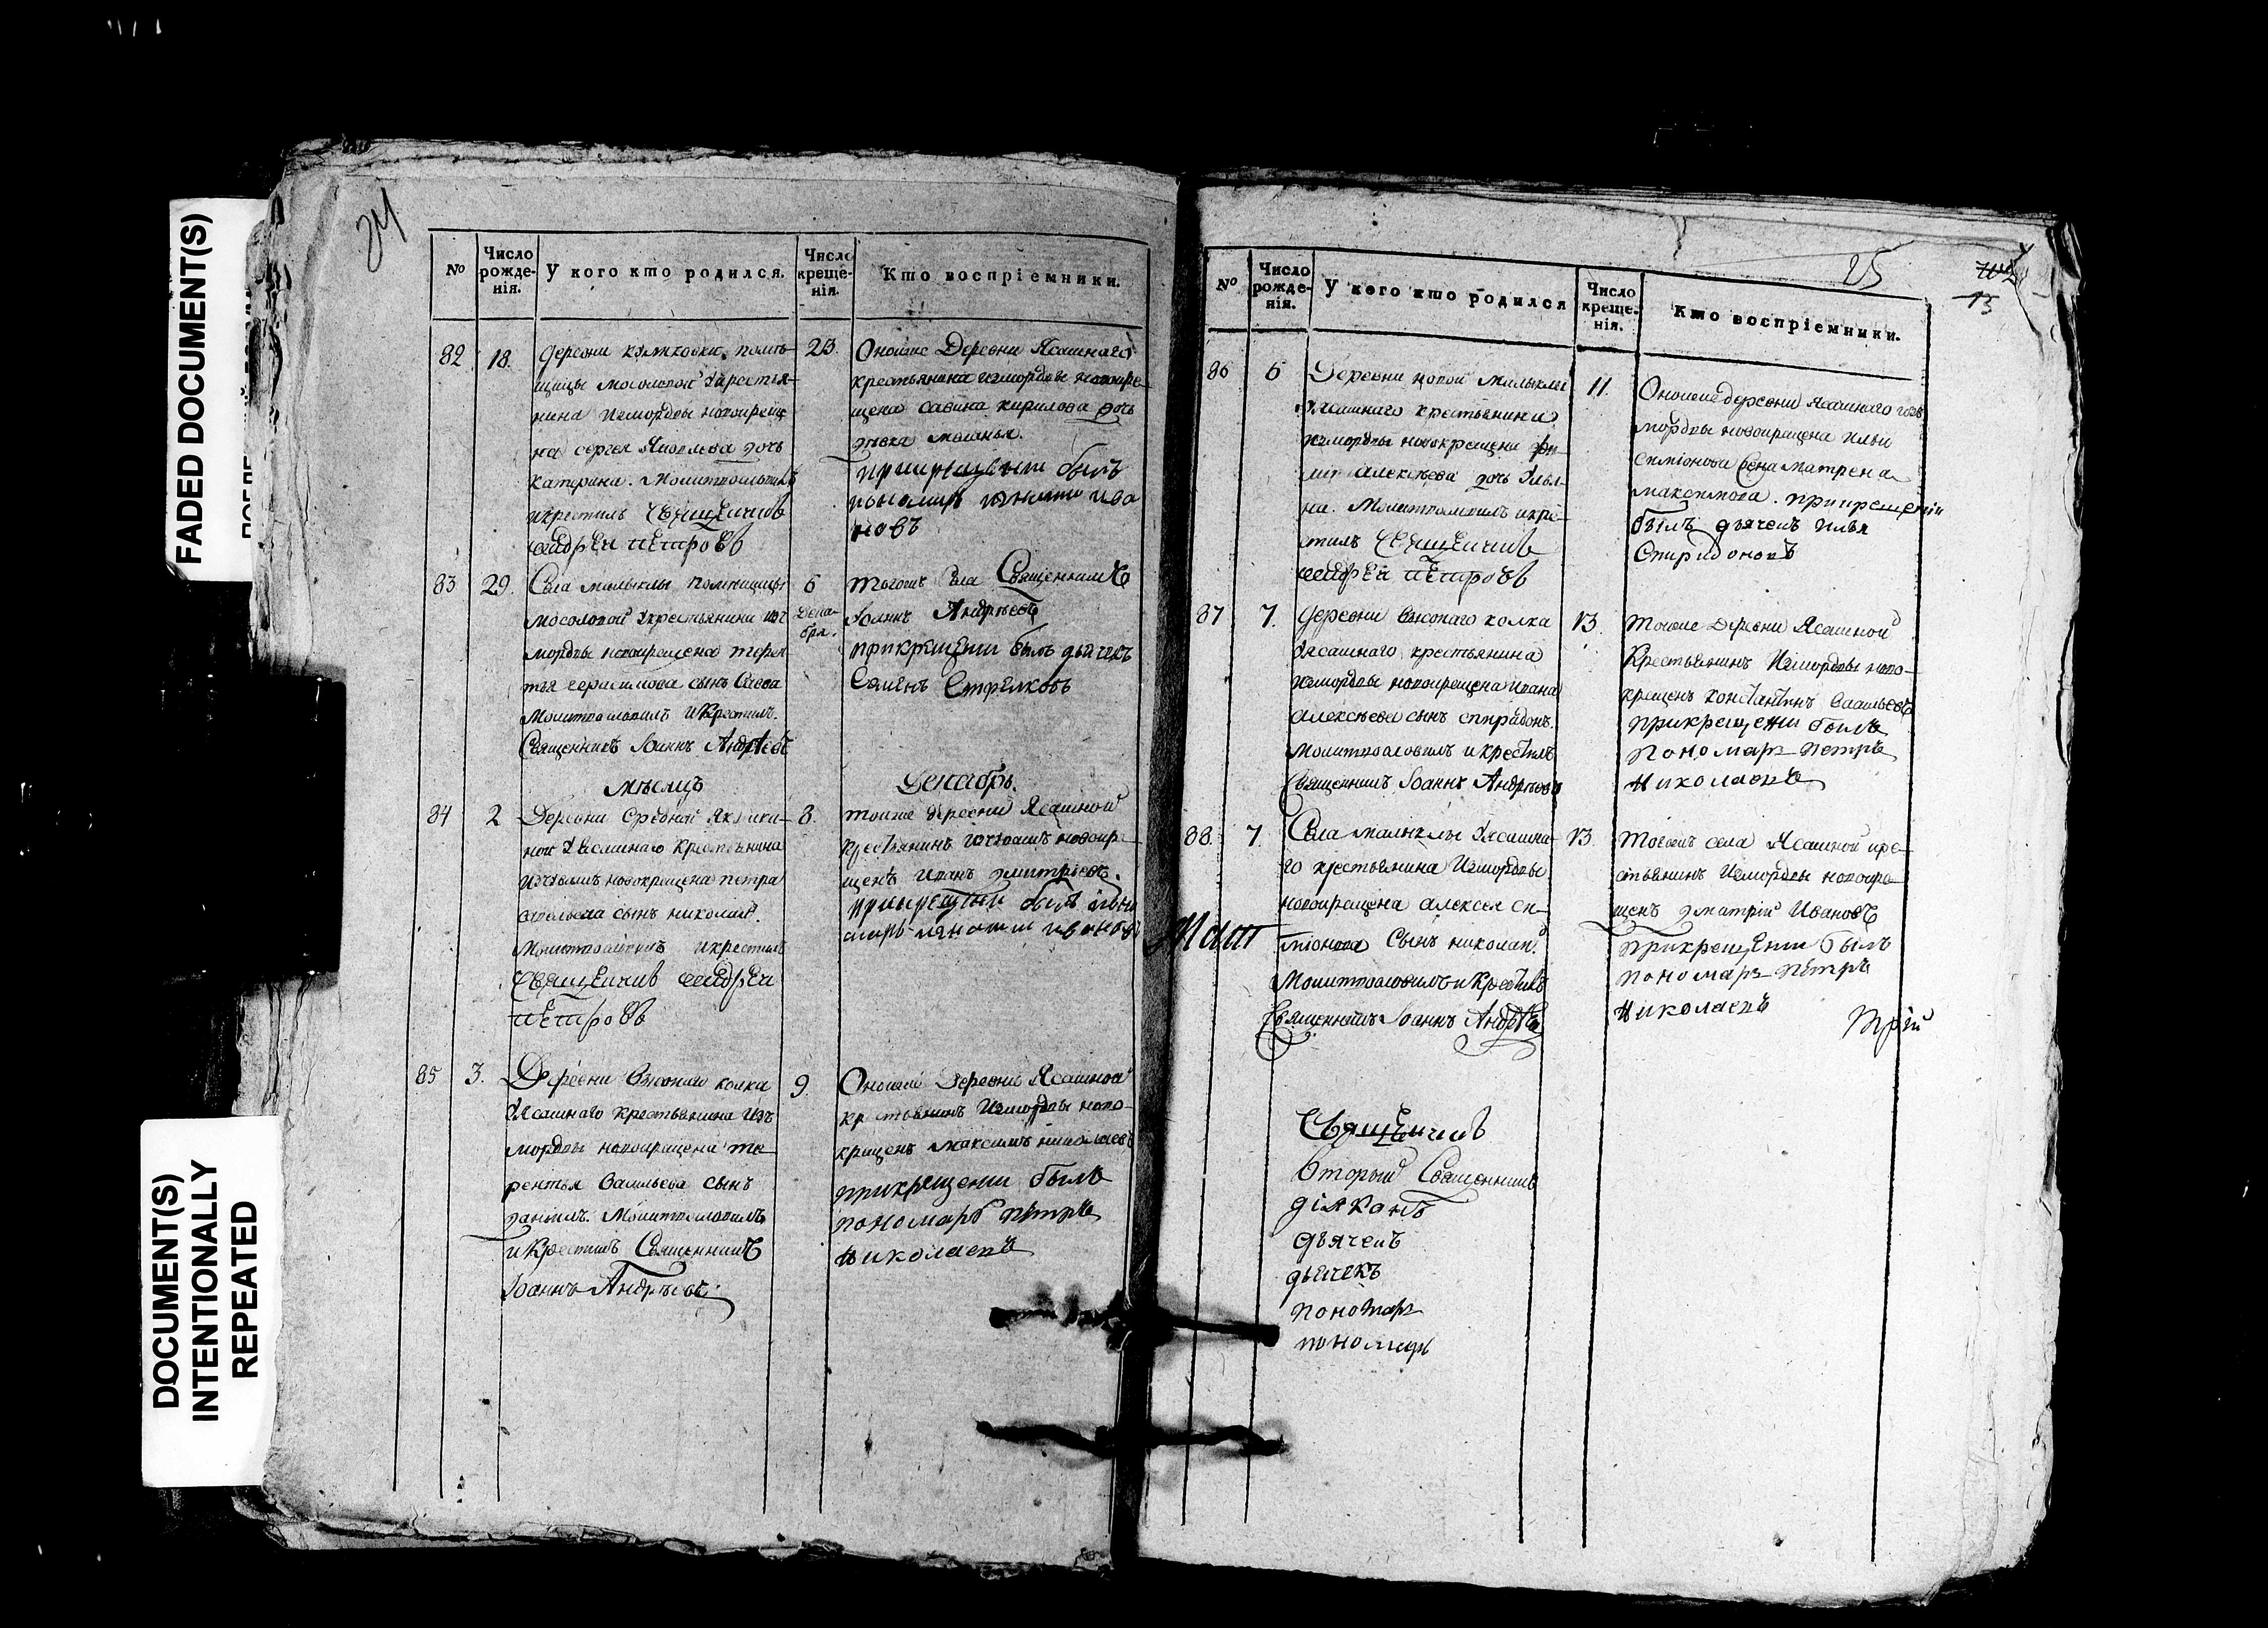 FADED DOCUMENT(S)
DOCUMENT(S)
INTENTIONALLY
REPEATED
24
№
Число рожде-нія.
У кого кто родился.
Число креще-нія.
Кто воспріемники.
82
18.
деревни
щицы Мосоловой крестья-
нина измордвы новокреще
на сергея Яковлева дочь
катерина. Молитвословилъ
икрестилъ Священникъ
Андрей Петровъ
23.
Оноиже Деревни Ясашнаго
крестьянина измордвы новокре
щена савина кирилова дочь
девка
прикрещении былъ
пономарь игнатии ива
новъ
83
29.
Села малыклы помещицы
Мосоловой крестьянина изъ
мордвы новокрещена терен
тья герасимова сынъ Савва
Молитвословилъ икрестилъ.
Священникъ Іоаннъ Андреевъ
6
Дека-
бря.
тогожъ села Священникъ
Іоаннъ Андреевъ
прикрещении былъ дьячекъ
Семенъ Стрелковъ
мѣсяцъ
Декабрь.
84
2
Деревни Средней
ной Ясашнаго крестьянина
изчювашъ новокрещена петра
васильева сынъ николай.
Молитвословилъ икрестилъ
Священникъ Андрей
Петровъ
8.
тоиже деревни Ясашной
крестьянинъ изчювашъ новокре
щенъ иванъ дмитріевъ.
прикрещении былъ поно
марь игнатии ивановъ
85
3.
Деревни Высокаго колка
Ясашнаго крестьянина изъ
мордвы новокрещена те
рентья Васильева сынъ
данилъ. Молитвословилъ
икрестилъ Священникъ
Іоаннъ Андреевъ.
9.
Оноиже Деревни Ясашной
крестьянинъ измордвы ново-
крещенъ максимъ николаевъ
прикрещении былъ
пономарь петръ
николаевъ
25
13
№
Число рожде-нія.
У кого кто родился
Число креще-нія.
Кто воспріемники.
86
6
Деревни новой малыклы
Ясашнаго крестьянина
измордвы новокрещена фи
лип алексѣева дочь Улья-
на. Молитвословилъ икре-
стилъ Священникъ
Андрей Петровъ
11.
Оноиже деревни Ясашнаго изъ
мордвы новокрещена ильи
симіонова жена матрена
максимова. прикрещении
былъ дьячекъ илья
Спиридоновъ
87
7.
деревни высокаго колка
Ясашнаго крестьянина
измордвы новокрещена ивана
алексѣева сынъ спиридонъ.
молитвословилъ икрестилъ
Священникъ Іоаннъ Андреевъ
13.
тоиже деревни Ясашной
Крестьянинъ Измордвы ново-
крещенъ константинъ Савельевъ
прикрещении былъ
пономарь петръ
николаевъ
88.
7.
Села малыклы Ясашна-
го крестьянина Измордвы
новокрещена алексея си-
міонова сынъ николай.
Молитвословилъ икрестилъ
Священникъ Іоаннъ Андреевъ
13.
тогожъ села Ясашной кре-
стьянинъ Измордвы новокре
щенъ дмитрій Ивановъ
прикрещении былъ
пономарь петръ
николаевъ
Священникъ
Вторый Священникъ
діяконъ
дьячекъ
дьячекъ
пономарь
пономарь